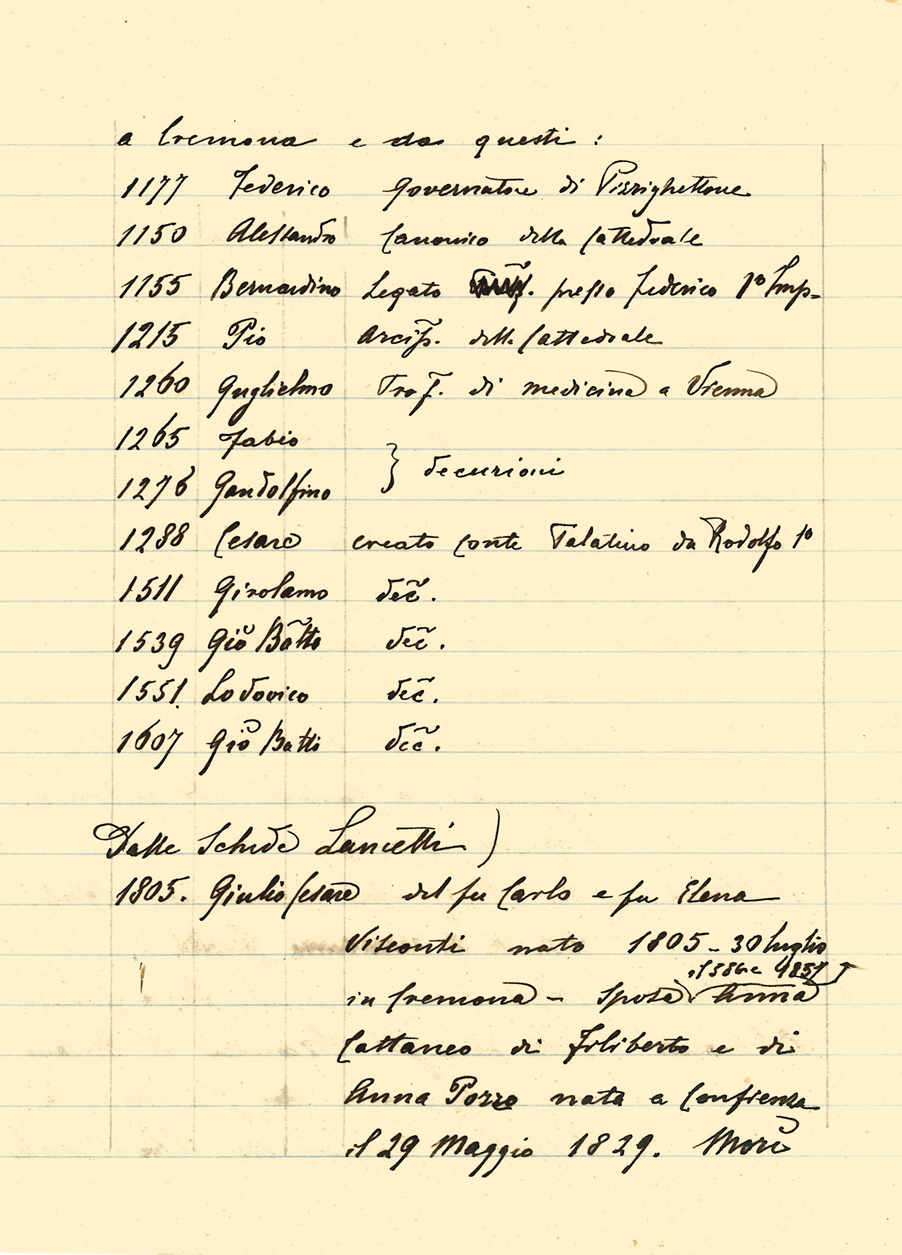 a Cremona e da questi:
1177 Federico Governatore di Pizzighettone
1150 Alessandro Canonico della Cattedrale
1155 Bernardino Legato presso Federico 1º Imp-
1215 Pio Arcip. della Cattedrale
1260 Guglielmo Prof. di medicina a Vienna
1265 Fabio
} decurioni
1276 Gandolfino
1288 Cesare creato Conte Palatino da Rodolfo 1º
1511 Girolamo dec̃.
1539 Giõ Batta dec̃.
1551. Lodovico dec̃.
1607 Giõ Batti dec̃.
Dalle Schede Lancetti)
1805. Giulio Cesare del fu Carlo e fu Elena
Visconti nato 1805 - 30 luglio
il
in Cremona - Sposa Anna
Cattaneo di Filiberto e di
Anna Pozzo nata a Confienza
il 29 Maggio 1829. Morì